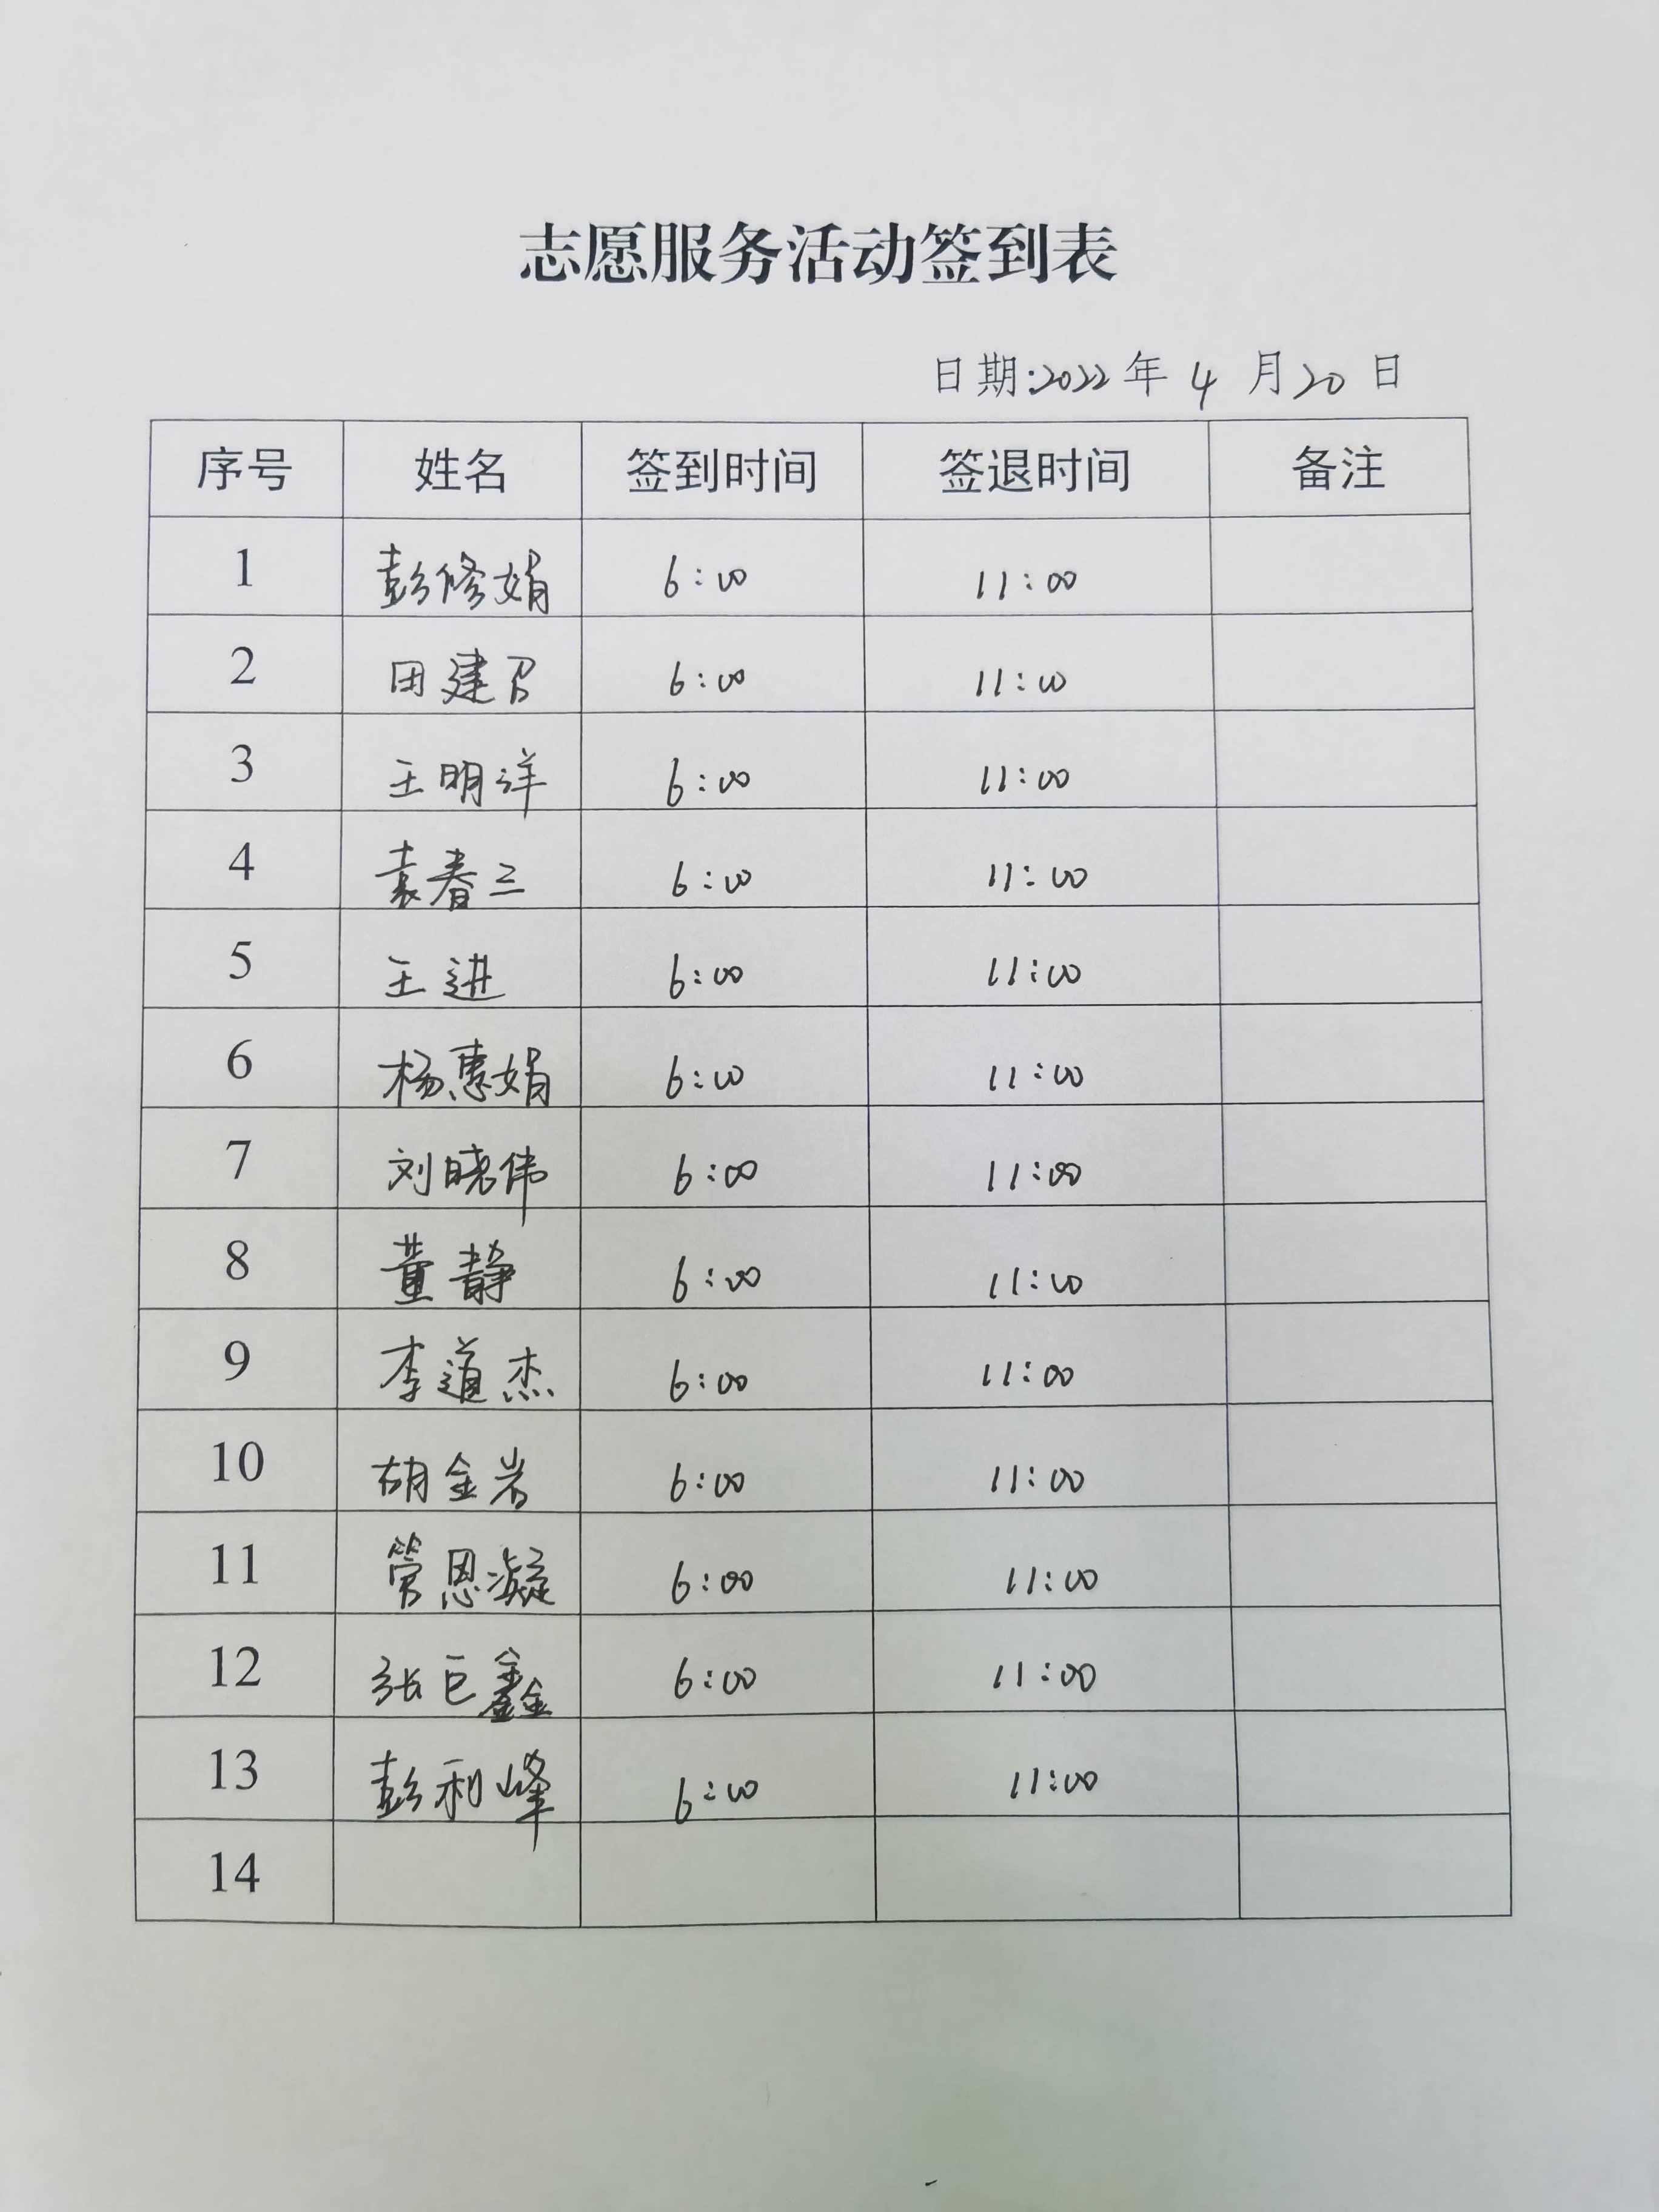 志愿服务活动签到表
日期:2022年4月20日
序号 姓名 签到时间 签退时间 备注
1 彭修娟 6:00 11:00
2 田建召 6:00 11:00
3 王明洋 6:00 11:00
4 袁春三 6:00 11:00
5 王进 6:00 11:00
6 杨惠娟 6:00 11:00
7 刘晓伟 6:00 11:00
8 董静 6:00 11:00
9 李道杰 6:00 11:00
10 胡金岩 6:00 11:00
11 管恩凝 6:00 11:00
12 张巨鑫 6:00 11:00
13 彭利峰 6:00 11:00
14